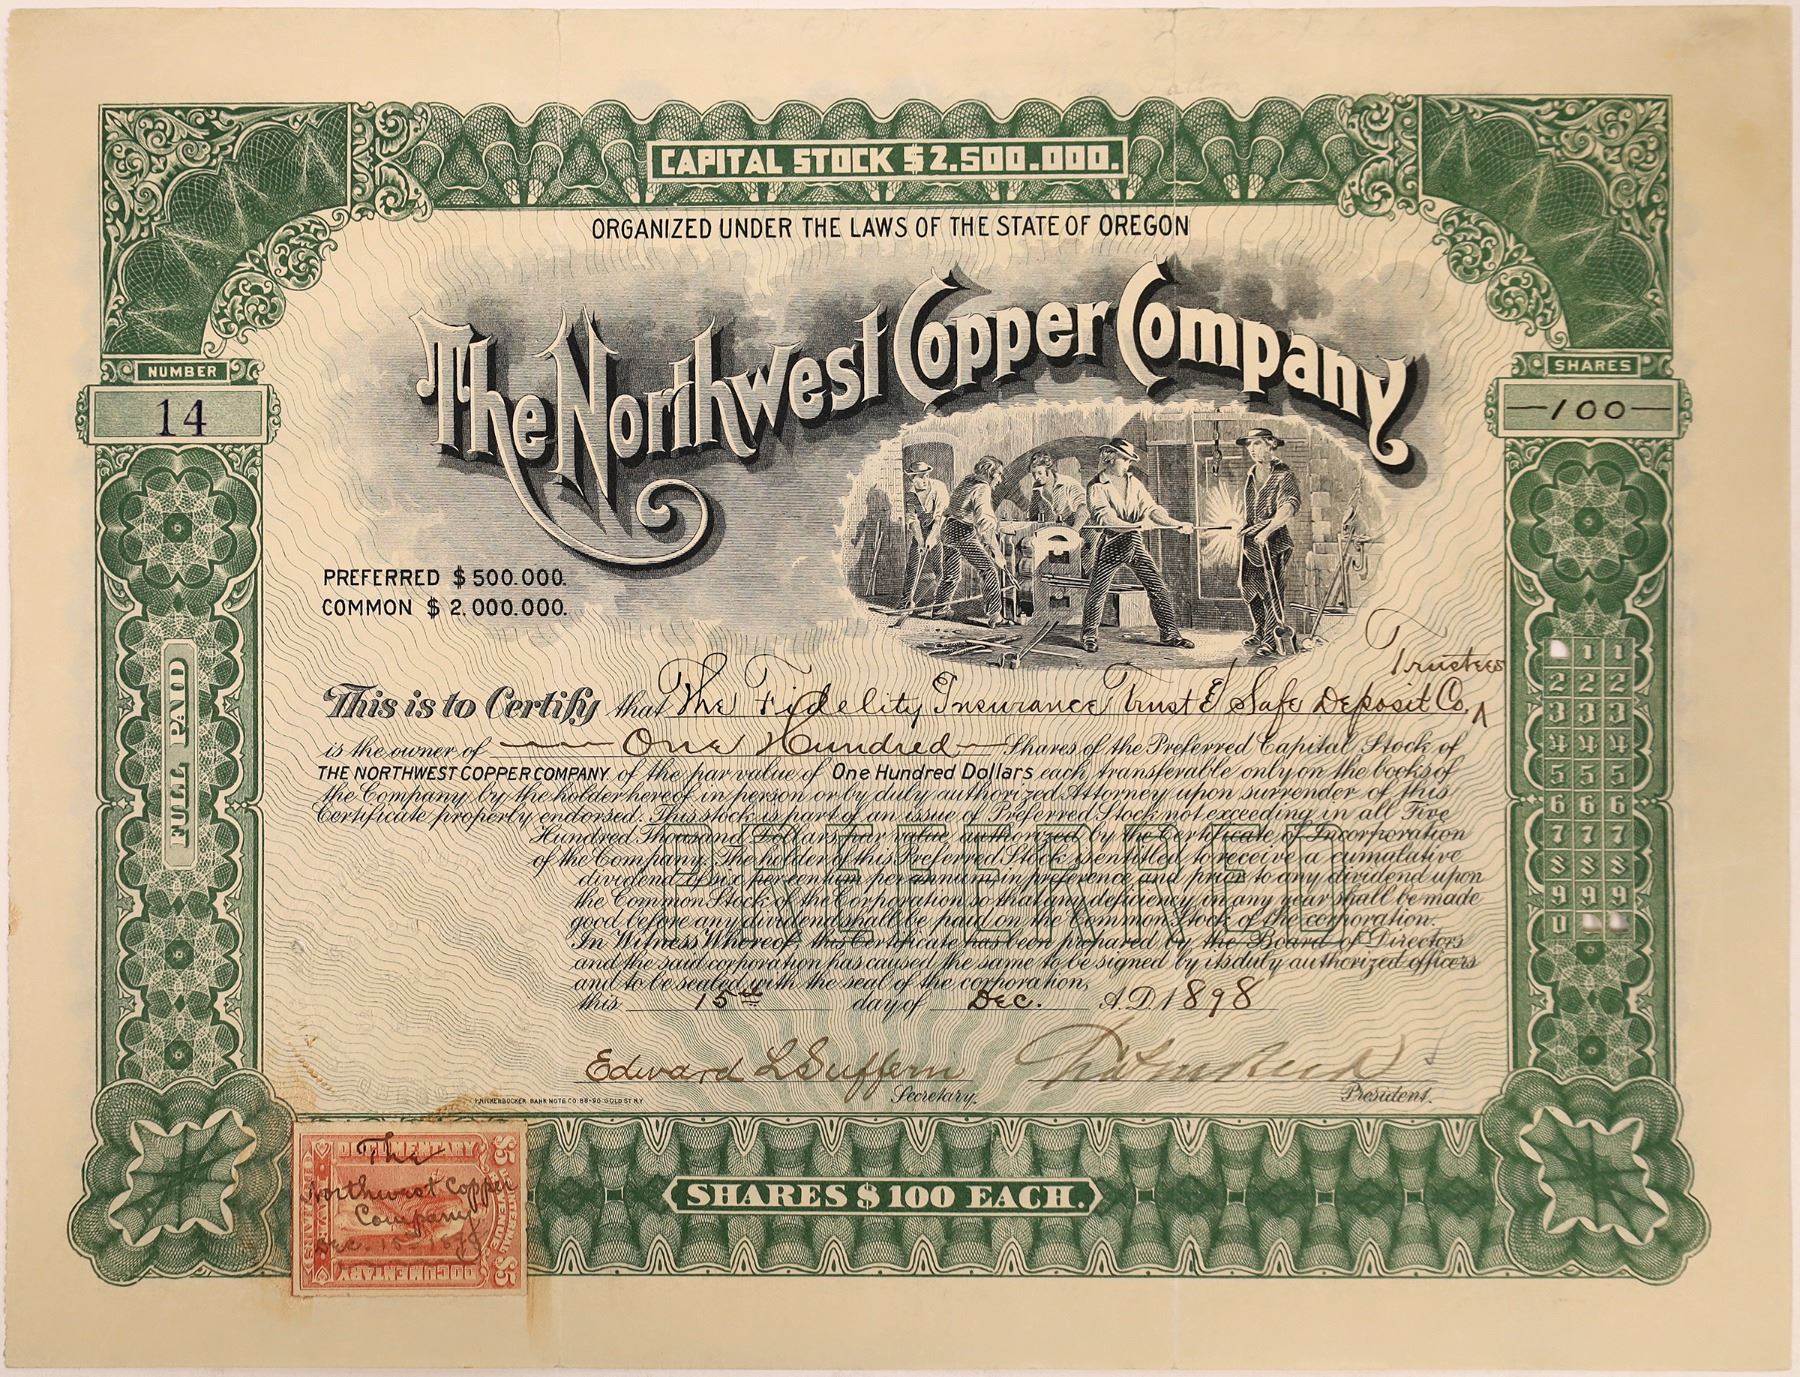 CAPITAL STOCK $2.500.000.
ORGANIZED UNDER THE LAWS OF THE STATE OF OREGON
The Northwest Copper Company
NUMBER
14
SHARES
—100—
PREFERRED $500.000.
COMMON $2.000.000.
FULL PAID
Trustees
This is to Certify that The Fidelity Insurance Trust & Safe Deposit Co. ^
is the owner of One Hundred Shares of the Preferred Capital Stock of
THE NORTHWEST COPPER COMPANY of the par value of One Hundred Dollars each, transferable only on the books of
the Company by the holder hereof in person or by duly authorized Attorney upon surrender of this
Certificate properly endorsed. This stock is part of an issue of Preferred Stock not exceeding in all Five
Hundred Thousand Dollars par value, authorized by the Certificate of Incorporation
of the Company. The holder of this Preferred Stock is entitled to receive a cumulative
dividend of six per centum per annum, in preference and prior to any dividend upon
the Common Stock of the Corporation so that any deficiency in any year shall be made
good before any dividend shall be paid on the Common Stock of the corporation.
In Witness Whereof, this Certificate has been prepared by the Board of Directors
and the said corporation has caused the same to be signed by its duly authorized officers
and to be sealed with the seal of the corporation,
this 15th day of Dec. A.D. 1898
1 1
2 2 2
3 3 3
4 4 4
5 5 5
6 6 6
7 7 7
8 8 8
9 9 9
0
Edward L Suffern
Secretary.
President.
KNICKERBOCKER BANK NOTE CO. 88-90 GOLD ST. N.Y.
$5 DOCUMENTARY
The
Northwest Copper
Company
Dec. 15
DOCUMENTARY $5
SHARES $100 EACH.